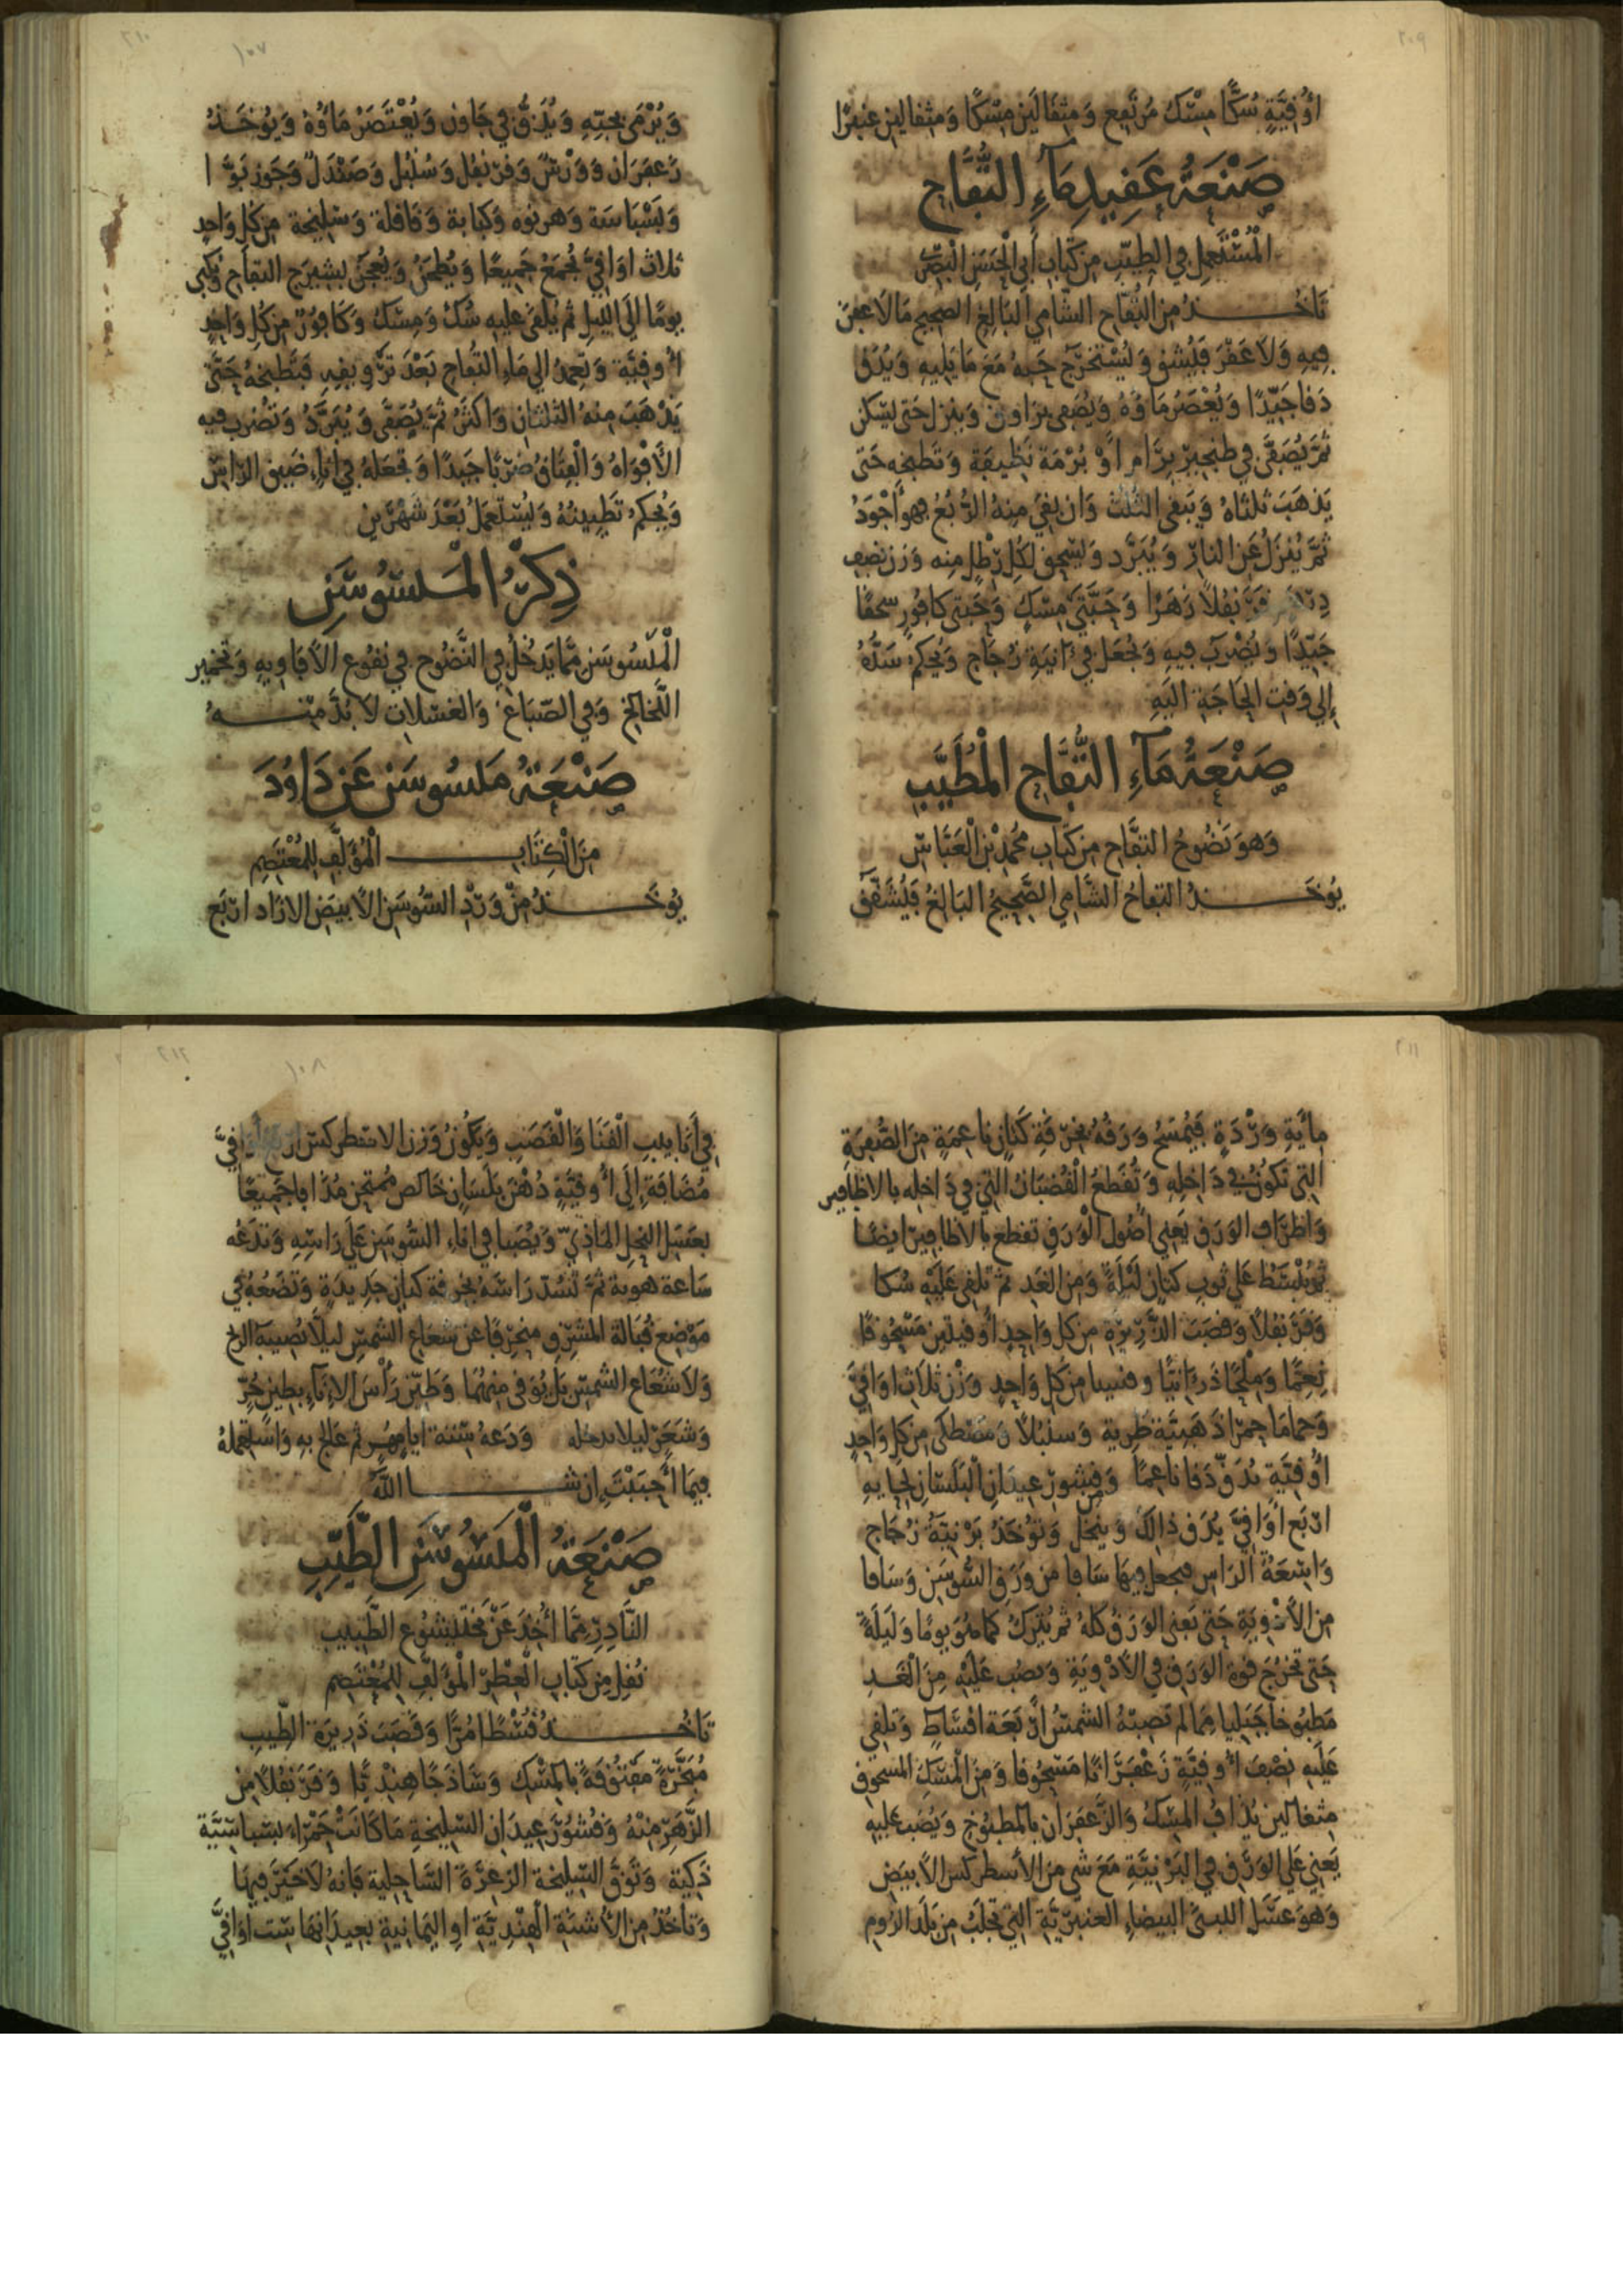 ٢٠٩
أُوقِيَّةٍ سُكًّا مِسْكٌ مُرْتَفِعٍ وَمِثْقَالَيْنِ مِسْكًا وَمِثْقَالَيْنِ عَنْبَرًا
صَنْعَةُ عَقِيدِ مَآءِ التُّفَّاحِ
الْمُسْتَعْمِلِ فِي الطِّيبِ مِنْ كِتَابِ أَبِي الْحَسَنِ الْبَصْرِيّ
تَاخُذُ مِنَ التُّفَّاحِ الشَّامِي الْبَالِغِ الصَّحِيحِ مَا لَا عَفَنَ
فِيهِ وَلَا عَقْرَ فَيُشَقُّ وَيُسْتَخْرَجُ حَبُّهُ مَعَ مَا يَلِيهِ وَيُدَقُّ
دَقًّا جَيِّدًا وَيُعْصَرُ مَاؤُهُ وَيُصَفَّى بِرَاوُوقٍ وَيُنْزَلُ حَتَّى يَسْكُنَ
ثُمَّ يُصَفَّى فِي طِنْجِيرِ بِرَامٍ أَوْ بُرْمَةٍ نَظِيفَةٍ وَتَطْبُخُهُ حَتَّى
يَذْهَبَ ثُلُثَاهُ وَيَبْقَى الثُّلُثُ وَإِنْ بَقِيَ مِنْهُ الرُّبُعُ فَهُوَ أَجْوَدُ
ثُمَّ يُنْزَلُ عَنِ النَّارِ وَيُبَرَّدُ وَيُسْحَقُ لِكُلِّ رِطْلٍ مِنْهُ وَزْنُ نِصْفِ
دِرْهَمٍ قَرَنْفُلًا زَهْرًا وَحَبَّتَيْ مِسْكٍ وَحَبَّتَيْ كَافُورٍ سَحْقًا
جَيِّدًا وَيُضْرَبُ فِيهِ وَيُجْعَلُ فِي آنِيَةِ زُجَاجٍ وَيُحْكَمُ سَدُّهُ
إِلَى وَقْتِ الْحَاجَةِ إِلَيْهِ
صَنْعَةُ مَآءِ التُّفَّاحِ الْمُطَيَّبِ
وَهُوَ نَضُوحُ التُّفَّاحِ مِنْ كِتَابِ مُحَمَّدِ بْنِ الْعَبَّاسِ
يُوخَذُ التُّفَّاحُ الشَّامِي الصَّحِيحُ الْبَالِغُ فَيُشَقَّقُ
٢١٠
١٠٧
وَيُرْمَى بِحَبِّهِ وَيُدَقُّ فِي جَاوِن وَيُعْتَصَرُ مَاؤُهُ وَيُوخَذُ
زَعْفَرَان وَوَرْسٌ وَقَرَنْفُل وَسُنْبُل وَصَنْدَلٌ وَجَوْز بَوَّا
وَبَسْبَاسَة وَهَرْنُوَه وَكَبَابَة وَقَاقُلَة وَسَلِيخَة مِنْ كُلِّ وَاحِدٍ
ثَلَاث أَوَاقِيَّ تُجْمَعُ جَمِيعًا وَيُطْحَنُ وَيُعْجَنُ بِشِيرَجِ التُّفَّاحِ وَيُكْبَى
يَوْمًا إِلَى اللَّيْلِ ثُمَّ يُلْقَى عَلَيْهِ سُكٌّ وَمِسْكٌ وَكَافُورٌ مِنْ كُلِّ وَاحِدٍ
أُوقِيَّة وَتَعْمِدُ إِلَى مَاءِ التُّفَّاحِ بَعْدَ تَرْوِيقِهِ فَتَطْبُخُهُ حَتَّى
يَذْهَبَ مِنْهُ الثُّلُثَانِ وَأَكْثَرُ ثُمَّ يُصَفَّى وَيُبَرَّدُ وَتُضْرَبُ فِيهِ
الْأَفْوَاهُ وَالْفِتَاقُ ضَرْبًا جَيِّدًا وَتَجْعَلُهُ فِي إِنَاءٍ ضَيِّقِ الرَّاسِ
وَيُحْكَمُ تَطْيِينُهُ وَيُسْتَعْمَلُ بَعْدَ شَهْرَيْنِ
ذِكْرُ الْمَلْسُوسَنِ
الْمَلْسُوسَن مِمَّا يَدْخُلُ فِي النَّضُوحِ فِي نُقُوعِ الْأَفَاوِيهِ وَتَخْمِيرِ
اللَّخَالِخِ وَفِي الصِّبَاغِ وَالْغَسْلَاتِ لَا بُدَّ مِنْهُ
صَنْعَةُ مَلْسُوسَنٍ عَنْ دَاوُدَ
مِنَ الْكِتَابِ الْمُؤَلَّفِ لِلْمُعْتَصِمِ
يُوخَذُ مِنْ وَرْدِ السُّوسَنِ الْأَبْيَضِ الْأَزَادِ أَرْبَعَ
٢١١
مِائَةِ وَرْدَةٍ فَيُمْسَحُ وَرَقُهُ بِخِرْقَةِ كَتَّانٍ نَاعِمَةٍ مِنَ الصُّفْرَةِ
الَّتِي تَكُونُ فِي دَاخِلِهِ وَتُقْطَعُ الْقُضْبَانُ الَّتِي فِي دَاخِلِهِ بِالْأَظَافِيرِ
وَأَطْرَافُ الْوَرَقِ يَعْنِي أُصُولَ الْوَرَقِ تُقْطَعُ بِالْأَظَافِيرِ أَيْضًا
ثُمَّ يُبْسَطُ عَلَى ثَوْبِ كَتَّانٍ لَيْلَةً وَمِنَ الْغَدِ ثُمَّ تُلْقِي عَلَيْهِ سُكًّا
وَقَرَنْفُلًا وَقَصَبَ الذَّرِيرَةِ مِنْ كُلِّ وَاحِدٍ أُوقِيَتَيْنِ مَسْحُوقًا
نِعِمَّا وَمِلْحًا ذَرَانِيًّا مِنْ كُلِّ وَاحِدٍ وَزْن ثَلَاثِ أَوَاقِيَّ
وَحَمَامَا حَمْرَا ذَهَبِيَّة طَرِيَّة وَسُنْبُلًا وَمَصْطَكَى مِنْ كُلِّ وَاحِدٍ
أُوقِيَّة يُدَقُّ دَقًّا نَاعِمًا وَقُشُورَ عِيدَانِ الْبَلَسَانِ
أَرْبَع أَوَاقِيَّ يُدَقُّ ذَالِكَ وَيُنْخَلُ وَتُؤْخَذُ بَرْنِيَّةُ زُجَاجٍ
وَاسِعَةُ الرَّاسِ فَيُجْعَلُ فِيهَا سَافًا مِنْ وَرَقِ السُّوسَنِ وَسَافًا
مِنَ الْأَدْوِيَةِ حَتَّى يَفْنَى الْوَرَقُ كُلُّهُ ثُمَّ يُتْرَكُ كَمَا هُوَ يَوْمًا وَلَيْلَةً
حَتَّى تَخْرُجَ قُوَّةُ الْوَرَقِ فِي الْأَدْوِيَةِ وَيُصَبُّ عَلَيْهِ مِنَ الْغَدِ
مَطْبُوخًا جَبَلِيًّا مِمَّا لَمْ تُصِبْهُ الشَّمْسُ أَرْبَعَةَ أَقْسَاطٍ وَتُلْقِي
عَلَيْهِ نِصْفَ أُوقِيَّةٍ زَعْفَرَانًا مَسْحُوقًا وَمِنَ الْمِسْكِ الْمَسْحُوقِ
مِثْقَالَيْنِ يُدَافُ الْمِسْكُ وَالزَّعْفَرَان بِالْمَطْبُوخِ وَيُصَبُّ عَلَيْهِ
يَعْنِي عَلَى الْوَرَقِ فِي الْبَرْنِيَّةِ مَعَ شَيْ مِنَ الْأَسْطُرْكِسِ الْأَبْيَضِ
وَهُوَ عَسَلُ اللُّبْنَى الْبَيْضَاءِ الْعَنْبَرِيَّةِ الَّتِي تُجْلَبُ مِنْ بَلَدِ الرُّومِ
٢١٢
١٠٨
فِي أَنَابِيبِ الْقَنَا وَالْقَصَبِ وَيَكُونُ وَزْنُ الْاسْطُرْكِسِ أَرْبَعَ أَوَاقِيَّ
مُضَافَةً إِلَى أُوقِيَّةِ دُهْنِ بَلَسَانٍ خَالِصٍ مُمْتَحَنٍ مُذَابًا جَمِيعًا
بِعَسَلِ النَّحْلِ الْمَاذِيِّ وَيُصَبَّا فِي إِنَاءِ السُّوسَنِ عَلَى رَاسِهِ وَتَدَعُهُ
سَاعَة هَوِيَّة ثُمَّ تَسُدُّ رَاسَهُ بِخِرْقَةِ كَتَّانٍ جَدِيدَةٍ وَتَضَعُهُ فِي
مَوْضِعِ قُبَالَةَ الْمَشْرِقِ مُنْحَرِفًا عَنْ شُعَاعِ الشَّمْسِ لِيَلَّا تُصِيبَهُ الرِّيحُ
وَلَا شُعَاعُ الشَّمْسِ بَلْ يُوَقَّى مِنْهُمَا وَطَيِّنْ رَأْسَ الْإِنَآءِ بِطِينٍ حُرٍّ
وَشَعَرٍ لِيَلَا وَدَعْهُ سِتَّةَ أَشْهُرٍ ثُمَّ عَالِجْ بِهِ وَاسْتَعْمِلْهُ
فِيمَا أَحْبَبْتَ إِنْ شَا اللَّهُ
صَنْعَةُ الْمَلَسُوسَنِ الطَّيِّبِ
النَّادِرِ مِمَّا أُخِذَ عَنْ بَخْتِيشُوعِ الطَّبِيبِ
نُقِلَ مِنْ كِتَابِ الْعِطْرِ الْمُؤَلَّفِ لِلْمُعْتَصِمِ
تَاخُذُ قُسْطًا مُرًّا وَقَصَبَ ذَرِيرَةِ الطِّيبِ
مُبَخَّرَةً مَفْتُوقَةً بِالْمِسْكِ وَسَاذَجًا هِنْدِيًّا وَقَرَنْفُلًا مِنَ
الزَّهْرِ مِنْهُ وَقُشُورَ عِيدَانِ السَّلِيخَةِ مَا كَانَتْ حَمْرَاءَ بَسْبَاسِيَّة
ذَكِيَّة وَتَوَقَّ السَّلِيخَة الزَّعِرَةَ السَّاحِلِيَة فَإِنَّهُ لَا خَيْرَ فِيهَا
وَتَاخُذُ مِنَ الْأُشْنَةِ الْهِنْدِيَّةِ أَوِ الْيَمَانِيَةِ بِعِيدَانِهَا سِتّ أَوَاقِيَّ